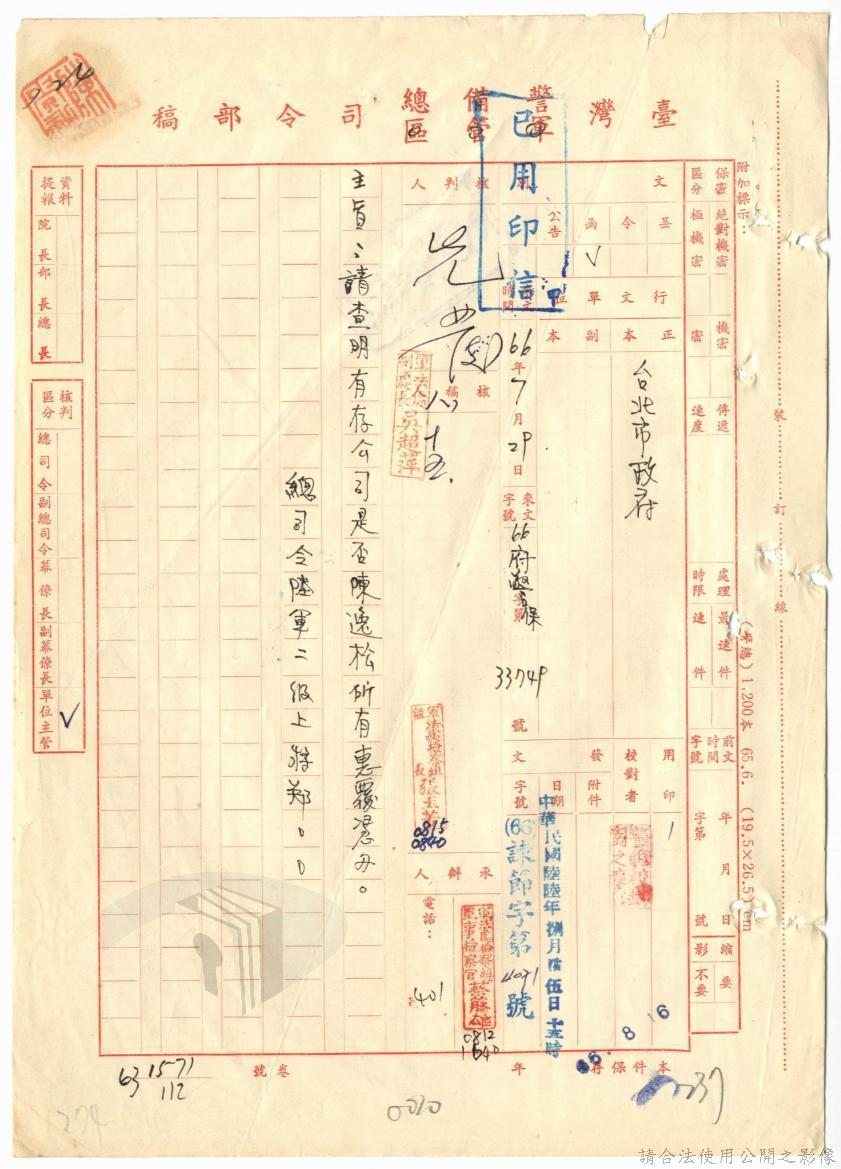 臺灣警備總司令部稿
軍管區
已用印信
附加標示：
保密區分
絕對機密
極機密
機密
密
傳遞速度
處理時限
最速件
速件
前文時間字號
年月日
字第
號
縮影
要
不要
(華總) 1,200本 65.6. (19.5×26.5)cm
裝
訂
線
文別
呈
令
函
公告
V
行文單位
正本
副本
台北市政府
甲
來文時間
66年7月29日
來文字號
66府警保
字第
33749
號
用印
1
校對者
發文
附件
日期
中華民國陸陸年捌月拾伍日十五時
字號
(66)諫節字第4071號
66.8.16
核判人
核稿
八
十五.
軍法處副處長吳超萍
軍法處檢察組組長張玉芳
0815
0840
承辦人
軍法處檢察組軍事檢察官蔡藤雄
0812
1640
電話：
401
主旨：請查明有存公司是否陳逸松所有惠覆憑辦。
總司令陸軍二級上將鄭○○
資料提報
院長
部長
總長
核判區分
總司令
副總司令
幕僚長
副幕僚長
單位主管
V
本件保存
年
卷號
63 15-71
112
0010
274
237
請合法使用公開之影像